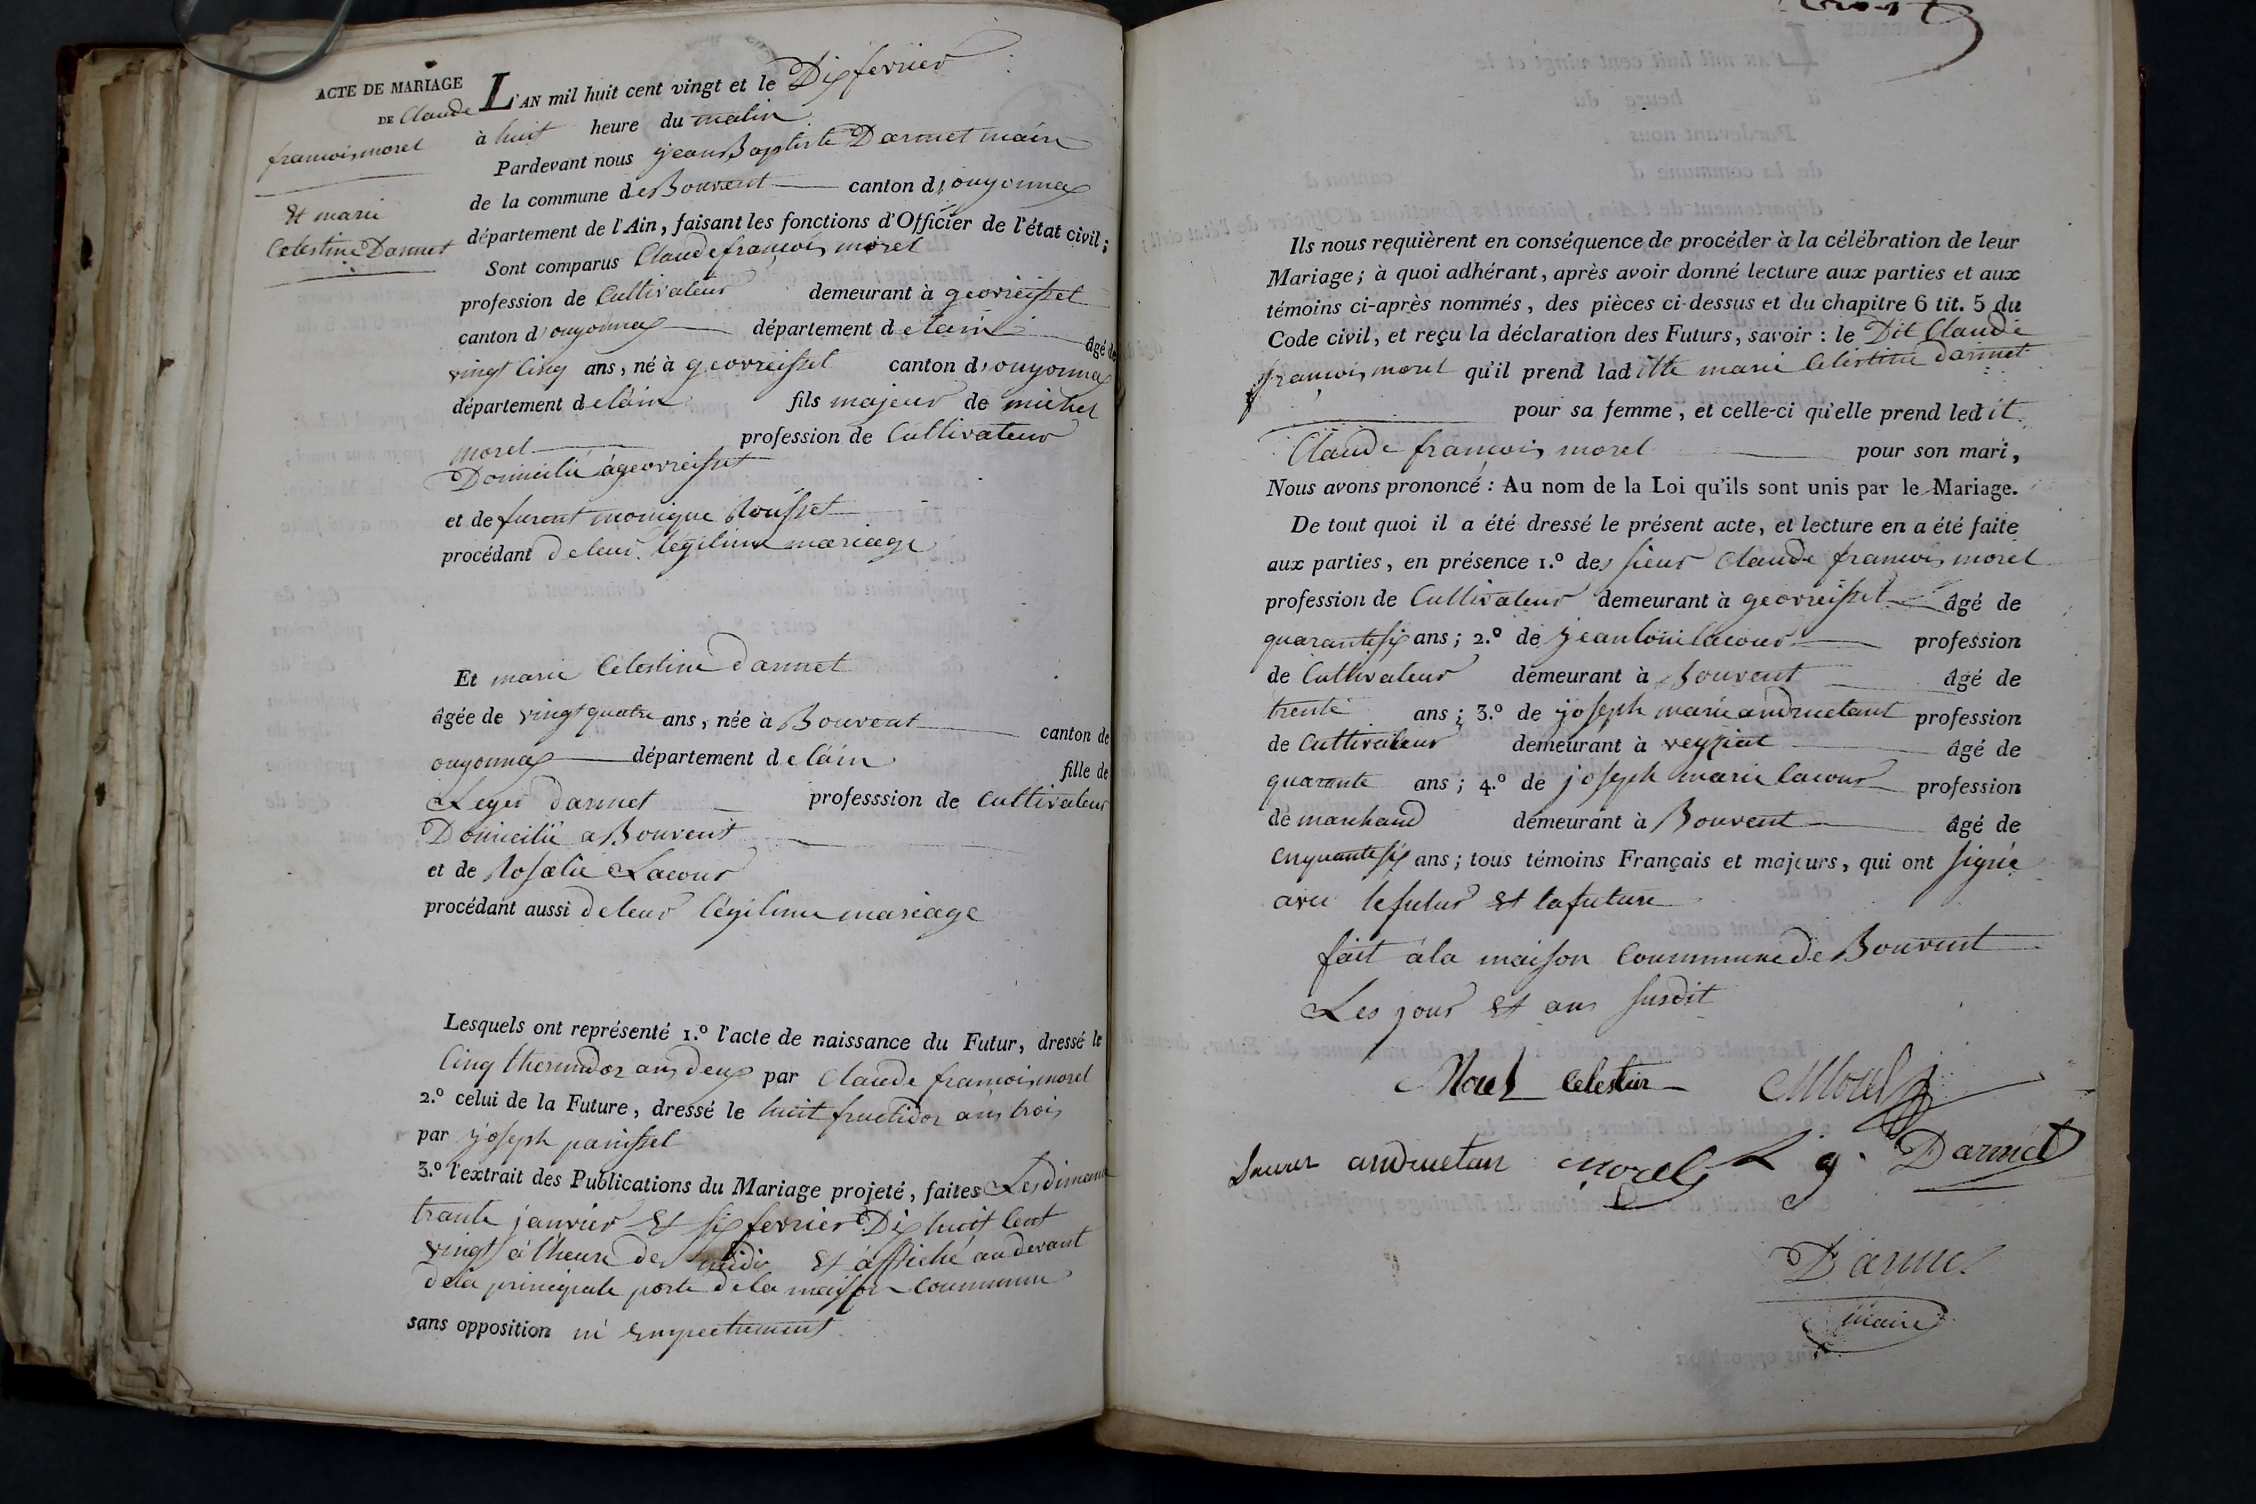 ACTE DE MARIAGE
DE Claude
francois morel
Et marie
Celestine Darmet
L'AN mil huit cent vingt et le Dix fevrier
à huit heure du matin
Pardevant nous jean Baptiste Darmet maire
de la commune de Bouvent canton d'ouyonnax
département de l'Ain, faisant les fonctions d'Officier de l'état civil;
Sont comparus Claude françois morel
profession de Cultivateur demeurant à geovreisset
canton d'ouyonnax département de lain âgé de
vingt Cinq ans, né à geovreisset canton d'ouyonnax
département de lain fils majeur de michel
morel profession de Cultivateur
Domicilié à geovreisset
et de furent monique Rousset
procédant de leur légitime mariage
Et marie Celestine darmet
âgée de vingt quatre ans, née à Bouvent canton de
ouyonnax département de lain fille de
Leger darmet professsion de Cultivateur
Domicilié a Bouvent
et de Rosalie Lacour
procédant aussi de leur légitime mariage
Lesquels ont représenté 1.º l'acte de naissance du Futur, dressé le
Cinq thermidor ans deux par Claude francois morel
2.º celui de la Future, dressé le huit fructidor ans trois
par joseph panisset
3.º l'extrait des Publications du Mariage projeté, faites Les dimanc
trante janvier Et six fevrier Dix huit Cent
vingt à l'heure de midi Et affiché au devant
de la principale porte de la maison commune
sans opposition ni Empechement
Ils nous requièrent en conséquence de procéder à la célébration de leur
Mariage; à quoi adhérant, après avoir donné lecture aux parties et aux
témoins ci-après nommés, des pièces ci-dessus et du chapitre 6 tit. 5 du
Code civil, et reçu la déclaration des Futurs, savoir: le Dit Claude
françois morel qu'il prend laditte marie Celestine darmet
pour sa femme, et celle-ci qu'elle prend ledit
Claude françois morel pour son mari,
Nous avons prononcé: Au nom de la Loi qu'ils sont unis par le Mariage.
De tout quoi il a été dressé le présent acte, et lecture en a été faite
aux parties, en présence 1.º des sieur Claude francois morel
profession de Cultivateur demeurant à geovreisset âgé de
quarante six ans; 2.º de jean louis lacour profession
de Cultivateur demeurant à Bouvent âgé de
trente ans; 3.º de joseph marie andruetant profession
de Cultivateur demeurant à veyziat âgé de
quarante ans; 4.º de joseph marie lacour profession
de marchand demeurant à Bouvent âgé de
cinquante six ans; tous témoins Français et majeurs, qui ont signée
avec le futur Et la future
fait à la maison Commune de Bouvent
Les jour Et ans susdit
Morel Celestin Morel
andruetan morel L g. Darmet
Darmet
maire